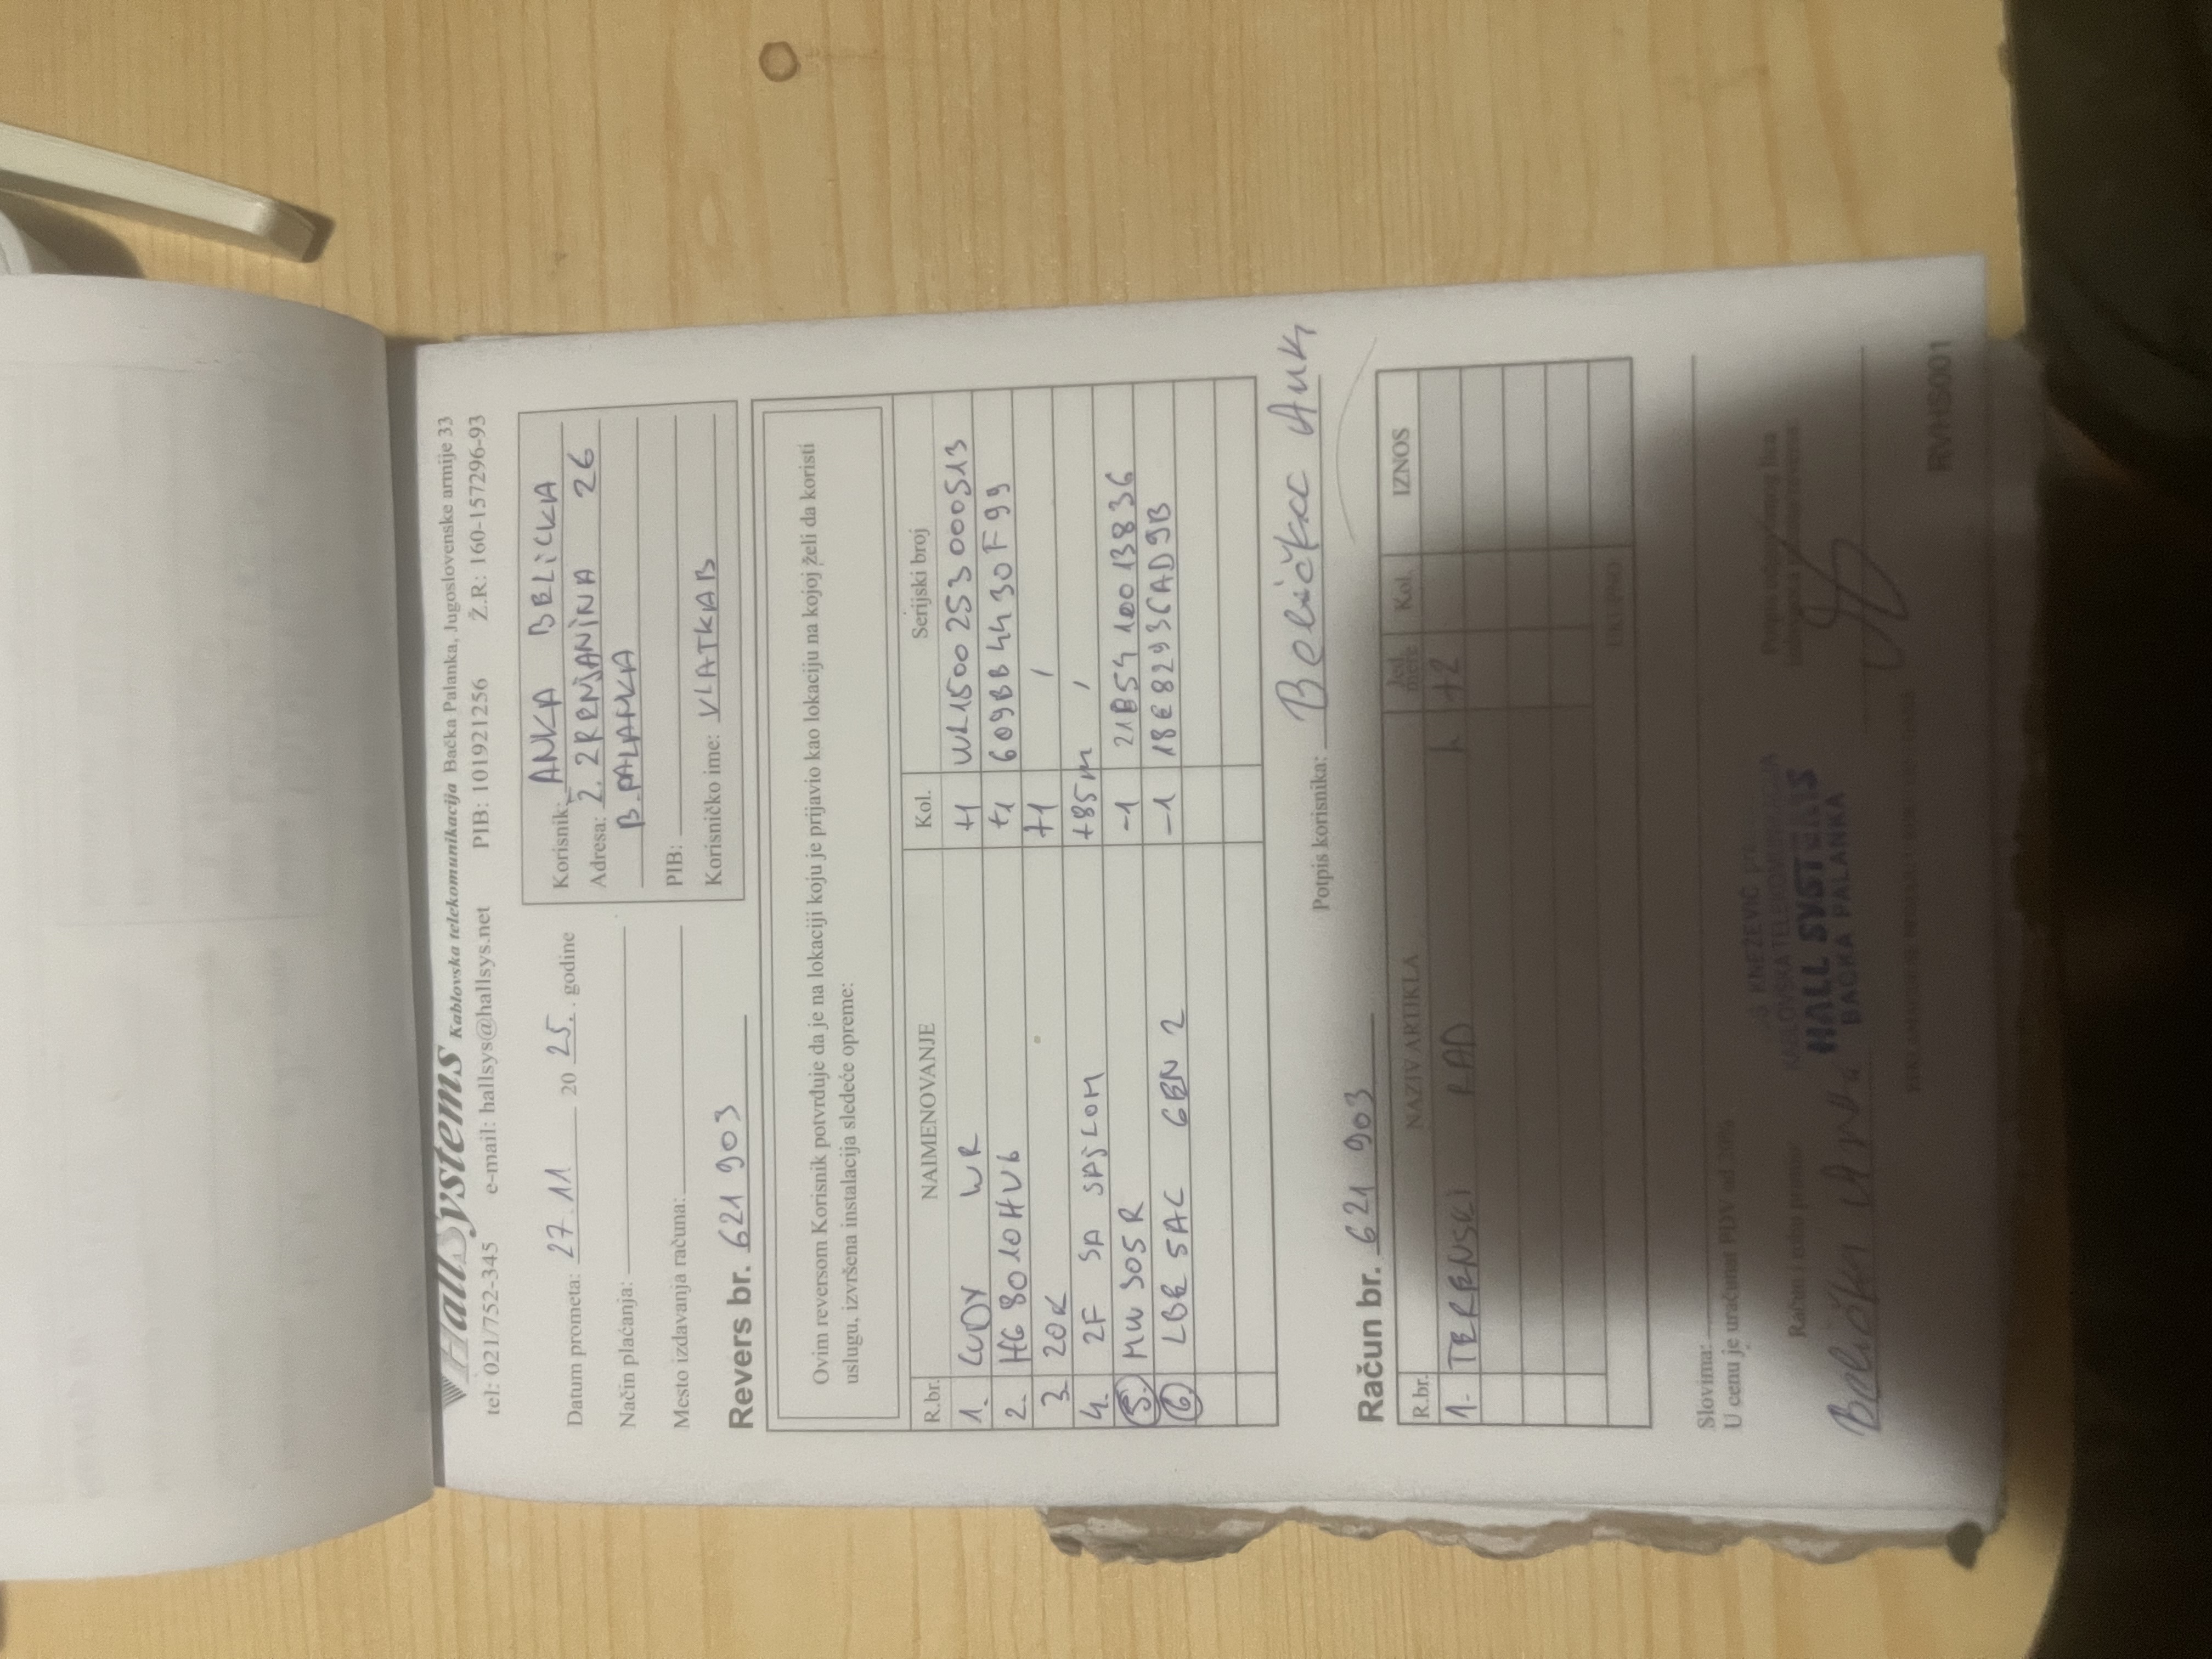 HallSystems Kablovska telekomunikacija Bačka Palanka, Jugoslovenske armije 33
tel: 021/752-345 e-mail: hallsys@hallsys.net PIB: 101921256 Ž.R: 160-157296-93
Datum prometa: 27.11 20 25. godine
Način plaćanja:
Mesto izdavanja računa:
Korisnik: ANKA BELIČKA
Adresa: Ž. ZRENJANINA 26
B. PALANKA
PIB:
Korisničko ime: VLATKAB
Revers br. 621 903
Ovim reversom Korisnik potvrđuje da je na lokaciji koju je prijavio kao lokaciju na kojoj želi da koristi
uslugu, izvršena instalacija sledeće opreme:
R.br. NAIMENOVANJE Kol. Serijski broj
1. CUDY WR +1 WR1500253000513
2. HG8010HV6 +1 609BB4430F99
3. 20K +1 /
4. 2F SA SAJLOM +85m /
5. MW305R -1 21B5410013836
6. LBE 5AC GEN 2 -1 18E8293CAD9B
Potpis korisnika: Belička Anka
Račun br. 621 903
R.br. NAZIV ARTIKLA Jed. mere Kol. IZNOS
1. TERENSKI RAD h +2
UKUPNO
Slovima:
U cenu je uračunat PDV od 20%
Račun i robu primio
Belička Anka
KABLOVSKA TELEKOMUNIKACIJA
HALL SYSTEMS
BAČKA PALANKA
RVHS001